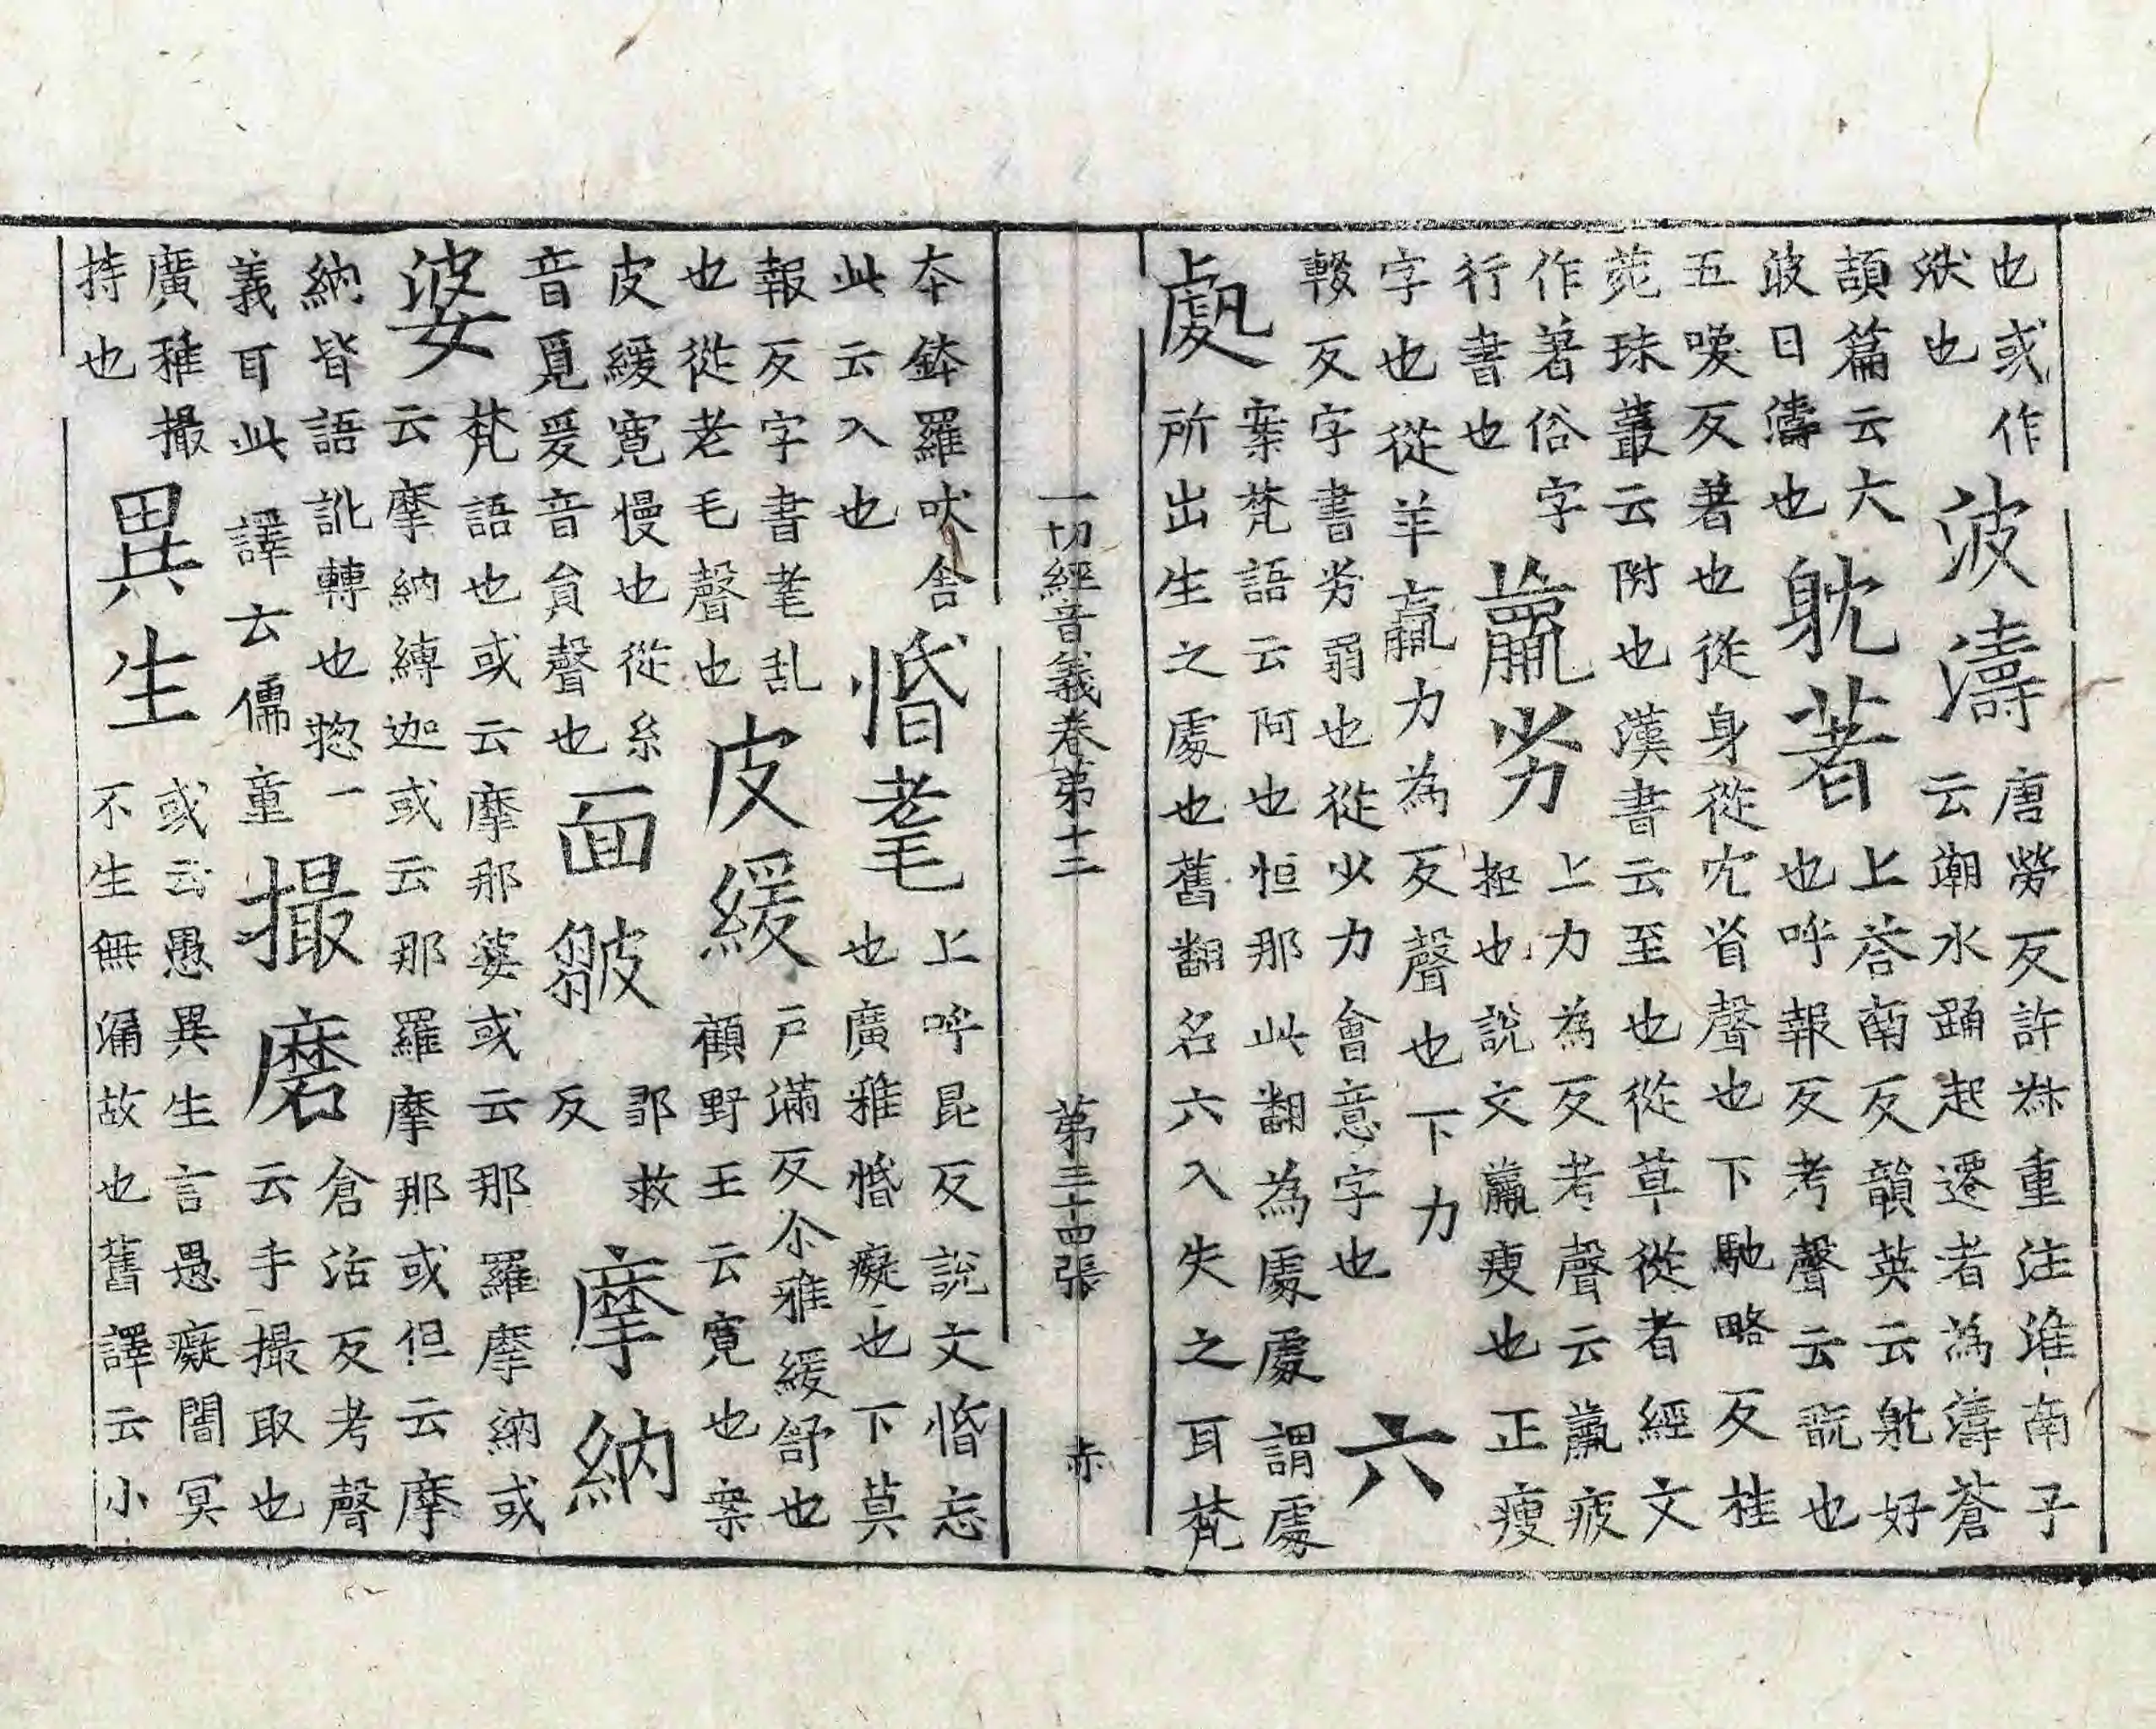 也或作
狀也
波濤
唐勞反許叔重注淮南子
云潮水踊起遷者為濤蒼
頡篇云大
波曰濤也
躭著
上荅南反韻英云躭好
也呼報反考聲云翫也
五喚反著也從身從冘省聲也下馳略反桂
苑珠叢云附也漢書云至也從草從者經文
作著俗字
行書也
羸劣
上力為反考聲云羸疲
極也說文羸瘦也正瘦
字也從羊𣎆力為反聲也下力
輟反字書劣弱也從少力會意字也
六
處
案梵語云阿也怛那此翻為處處謂處
所出生之處也舊翻名六入失之耳梵
一切經音義卷第十二 第三十四張 赤
本鉢羅吠舍
此云入也
惛耄
上呼昆反說文惛忘
也廣雅惛癡也下莫
報反字書耄乱
也從老毛聲也
皮緩
戸滿反尒雅緩舒也
顧野王云寬也案
皮緩寬慢也從糸
音覓爰音貟聲也
面皺
鄒救
反
摩納
婆
梵語也或云摩那婆或云那羅摩納或
云摩納縛迦或云那羅摩那或但云摩
納皆語訛轉也惣一
義耳此譯云儒童
撮磨
倉活反考聲
云手撮取也
廣雅撮
持也
異生
或云愚異生言愚癡闇冥
不生無漏故也舊譯云小